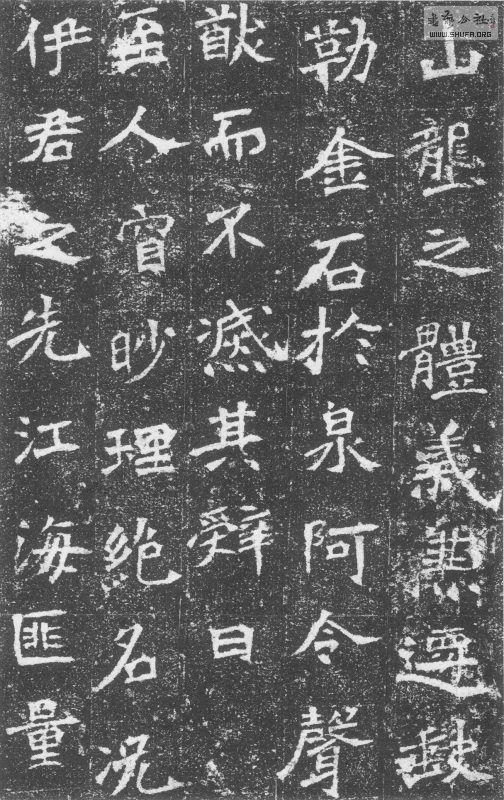 山壟之體義兼遷敢
勒金石於泉阿令聲
猷而不滅其辭曰
至人窅眇理絕名況
伊君之先江海匪量
WWW.SHUFA.ORG